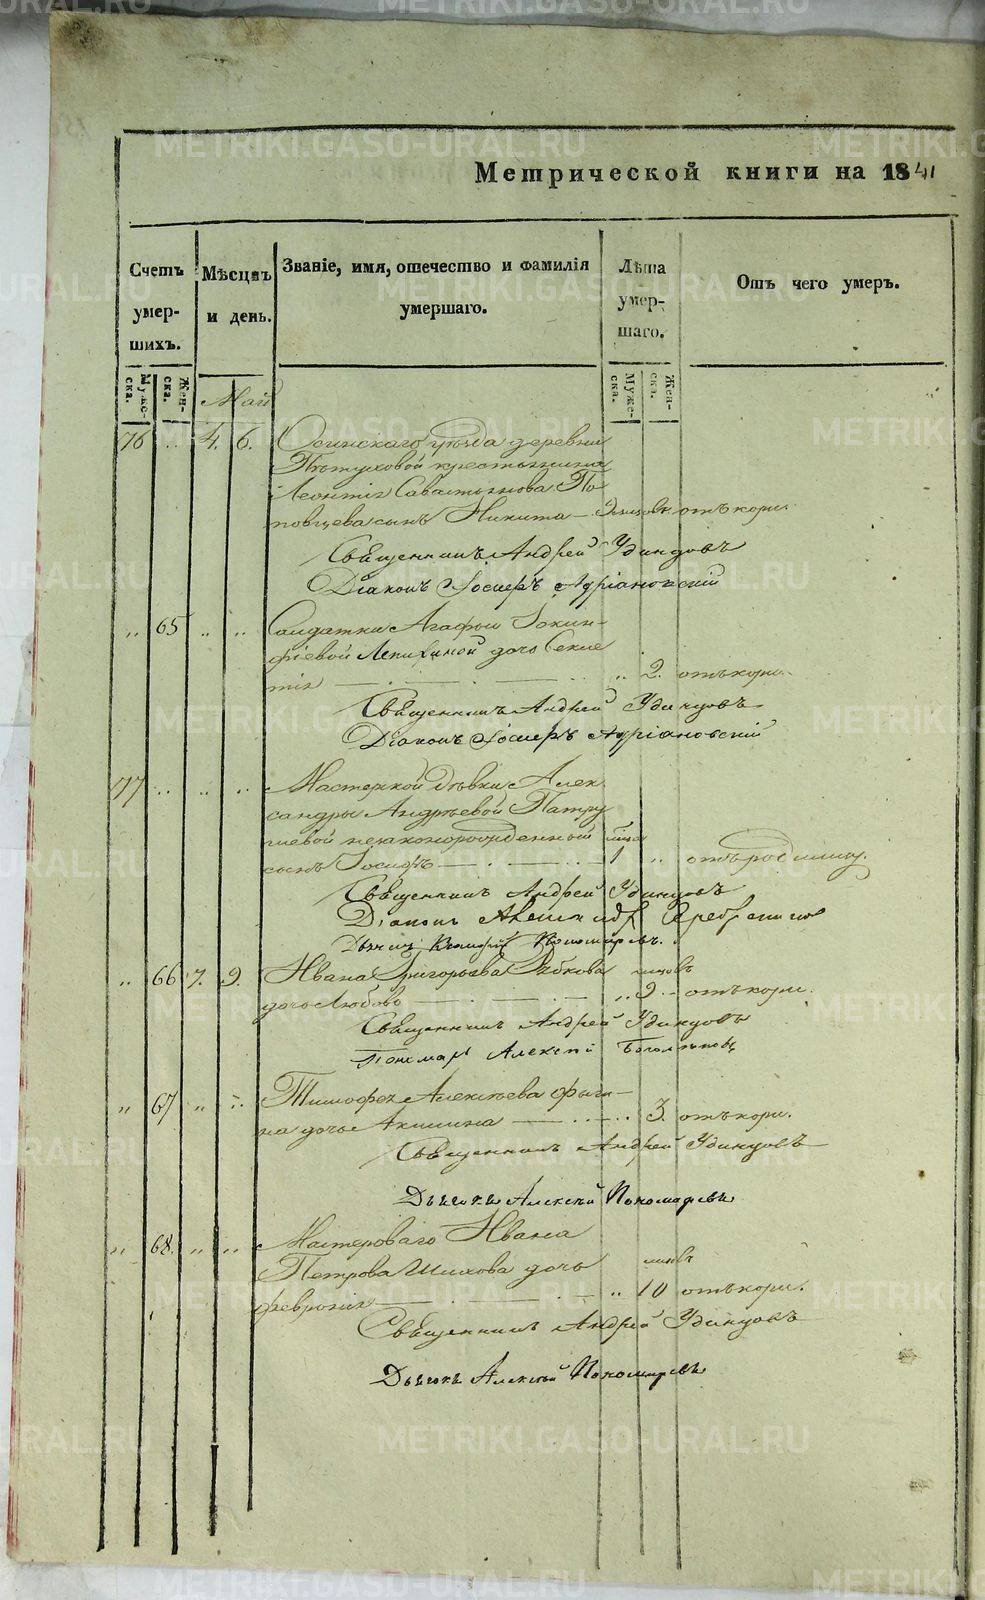 METRIKI.GASO-URAL.RU
Метрической книги на 1841
Счетъ умершихъ.
Мѣсяцъ и день.
Званіе, имя, отечество и фамилія умершаго.
Лѣта умершаго.
Отъ чего умеръ.
Мужеска.
Женска.
Мужеска.
Женска.
Май
76 4. 6. Осинскаго уѣзда деревни
Пѣтуховой крестьянина
Леонтія Савастьянова По
повцева сынъ Никита отъ кори.
Священникъ Андрей Удинцовъ
Діаконъ Іосифъ Адріановскій
„ 65 „ „ Солдатки Агафьи
фіевой дочь Секле
тія „ 2. отъ кори.
Священникъ Андрей Удинцовъ
Діаконъ Іосифъ Адріановскій
77 „ „ Мастерской дѣвки Алек
сандры Андрѣевой Патру
шевой незаконорожденный
сынъ Іосифъ 1 „ отъ родимца.
Священникъ Андрей Удинцовъ
Діаконъ
Пономаревъ.
„ 66 7. 9. Ивана Григорьева Рябкова
дочь Любовь „ 9 отъ кори.
Священникъ Андрей Удинцовъ
Пономарь Алексій
„ 67 „ Тимофея Алексѣева
на дочь Акилина „ 3. отъ кори.
Священникъ Андрей Удинцовъ
Дьячекъ Алексій Пономаревъ
„ 68. „ „ Мастероваго Ивана
Петрова Шихова дочь
Февронія „ 10 отъ кори.
Священникъ Андрей Удинцовъ
Дьячекъ Алексій Пономаревъ